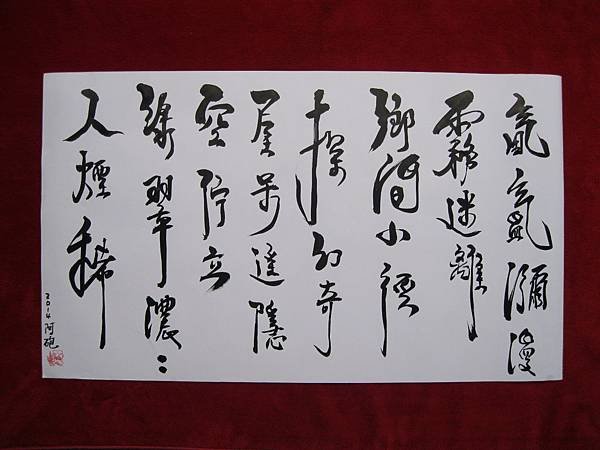 氤氳瀰漫
霧迷離
鄉間小徑
探幻奇
屋遙隱
空佇立
綠翠濃〻
人煙稀
2014 阿砲